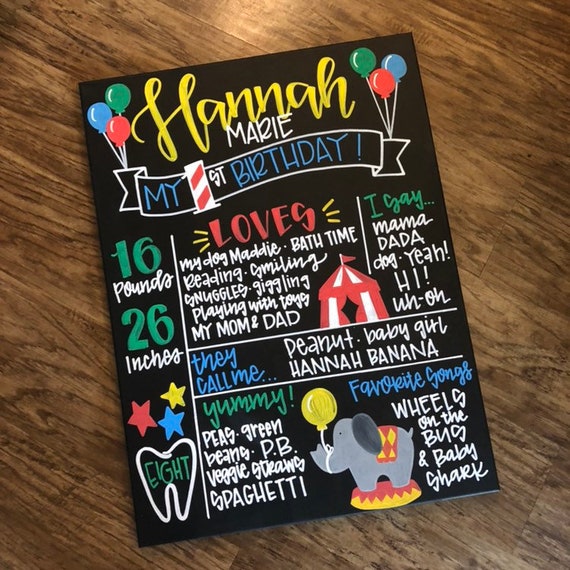 Hannah
MARIE
MY 1ST BIRTHDAY!
16
Pounds
26
Inches
LOVES
my dog Maddie · BATH TIME
Reading · Smiling
SNUGGLES · giggling
Playing with toys
MY MOM & DAD
I say...
mama
DADA
dog · Yeah!
HI!
uh-oh
they
CALL ME...
Peanut · baby girl
HANNAH BANANA
EIGHT
yummy!
PEAS · green
beans · P.B.
veggie straws
SPAGHETTI
Favorite Songs
WHEELS
on the
BUS
& Baby
Shark